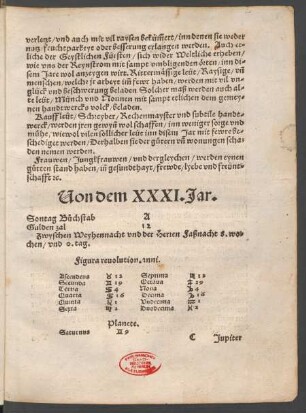 verletzt, vnd auch mit vil raysen bekümert, inn denen sie weder
nutz, fruchtparkeyt oder besserung erlangen werden. Auch ett-
liche der Geystlichen Fürsten, sich wider Weltliche erheben,
wie vns der Reynstrom mit sampt vmbligenden örten, inn di-
sem Jare wol anzeygen wirt. Rittermässige leüt, Raysige, vñ
menschen, welche jr arbeyt im̃ fewr haben, werden mit vil vn-
glück vnd beschwerung beladen Solcher maß werden auch al-
te leüt, Münch vnd Nonnen mit sampt etlichen dem gemey-
nen handtwercks volck, beladen.
Kauffleüt, Schreyber, Rechenmayster vnd subtile handt-
werck, werden jren gewyn wol schaffen, inn weniger sorge vnd
mühe, wiewol vilen sollicher leüt inn disem Jar mit fewre be-
schediget werden, Derhalben sie der güter vñ wonungen scha-
den nemen werden.
Frauwen, Jungkfrauwen, vnd dergleychen, werden eynen
gůten stand haben, in gesundtheyt, frewde, liebe vnd freünt-
schafft ꝛc.
Von dem XXXI. Jar.
Sontag Bůchstab A
Gulden zal 12
Zwyschen Weyhennacht vnd der Herren Faßnacht 8. wo-
chen, vnd 0. tag.
Figura reuolution. anni.
Ascendens ♉ 12 Septima ♏ 12
Secunda ♊ 19 Octaua ♐ 19
Tercia ♋ 4 Nona ♑ 4
Quarta ♋ 16 Decima ♑ 16
Quinta ♌ 1 Vndecima ♒ 1
Sexta ♍ 2 Duodecima ♓ 2
Planete.
Saturnus ♊ 9
C Jupiter